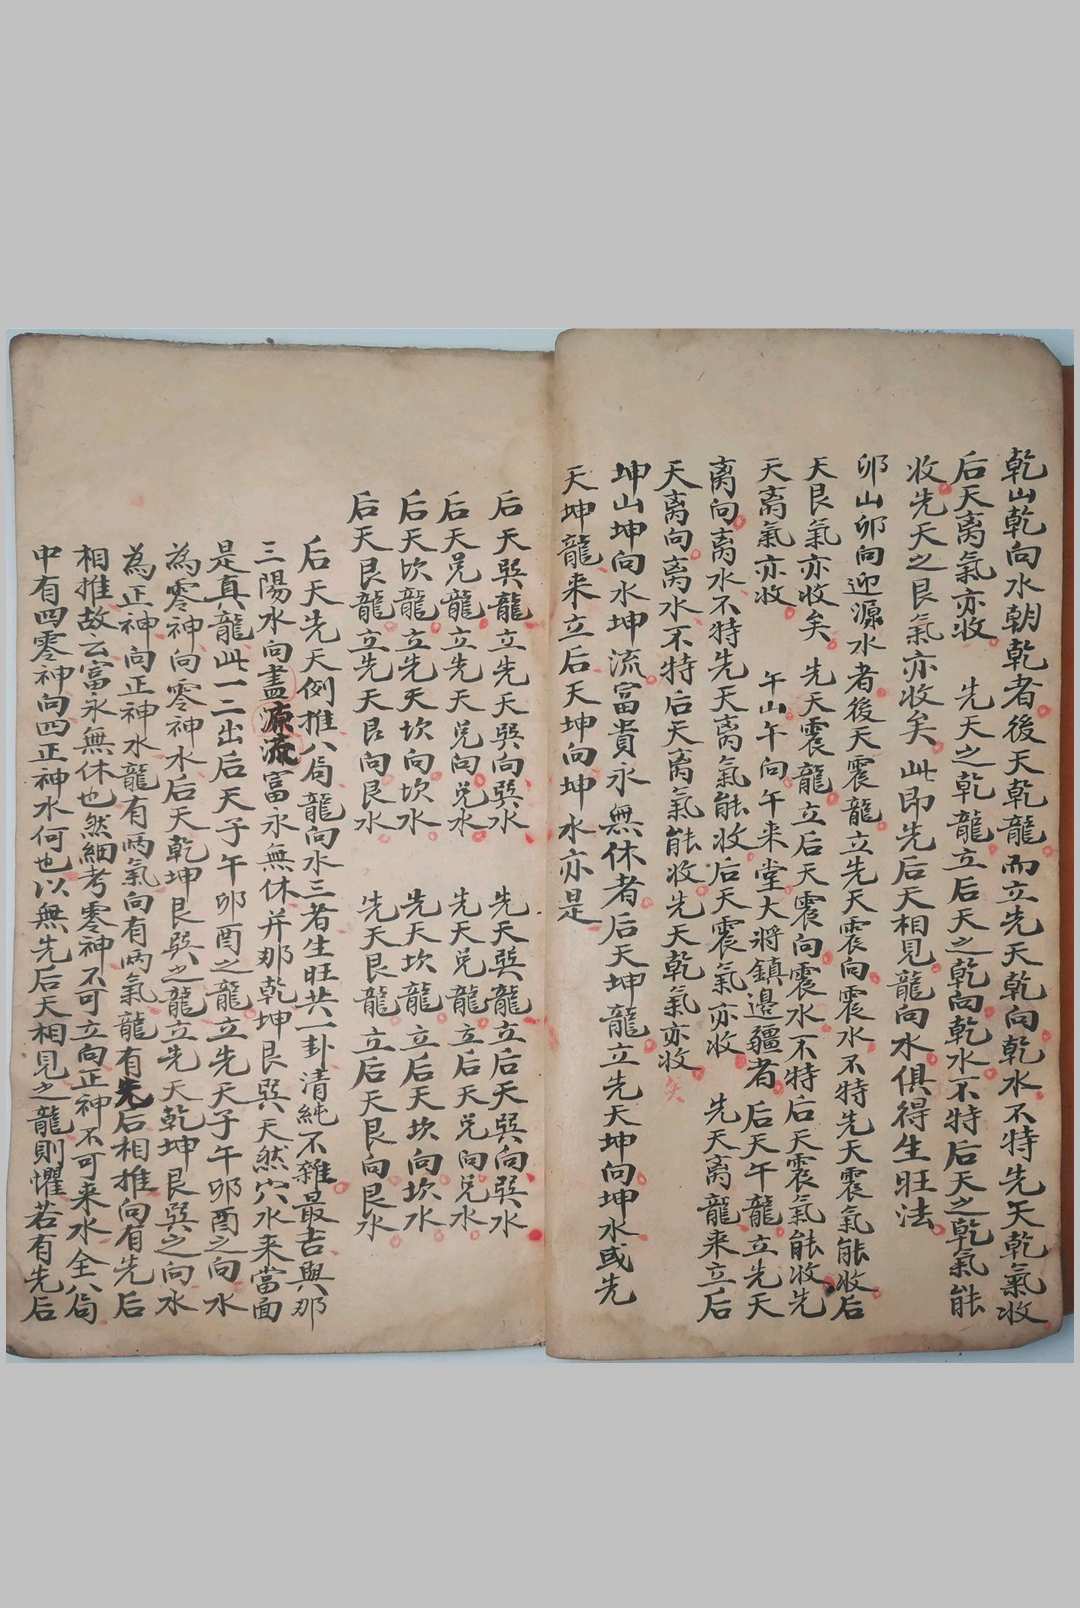 乾山乾向水朝乾者後天乾龍而立先天乾向乾水不特先天乾氣收
后天离氣亦收　先天之乾龍立后天之乾向乾水不特后天之乾氣能
收先天之艮氣亦收矣此即先后天相見龍向水俱得生旺法
卯山卯向迎源水者後天震龍立先天震向震水不特先天震氣能收后
天艮氣亦收矣　先天震龍立后天震向震水不特后天震氣能收先
天离氣亦收　午山午向午来堂大將鎮邊疆者　后天午龍立先天
离向离水不特先天离氣能收后天震氣亦收　先天离龍来立后
天离向离水不特后天离氣能收先天乾氣亦收矣
坤山坤向水坤流富貴永無休者后天坤龍立先天坤向坤水或先
天坤龍来立后天坤向坤水亦是
后天巽龍立先天巽向巽水　先天巽龍立后天巽向巽水
后天兑龍立先天兑向兑水　先天兑龍立后天兑向兑水
后天坎龍立先天坎向坎水　先天坎龍立后天坎向坎水
后天艮龍立先天艮向艮水　先天艮龍立后天艮向艮水
后天先天例推八局龍向水三者生旺共一卦清純不雜最吉與那
三陽水向盡源流富永無休并那乾坤艮巽天然穴水来當面
是真龍此一二出后天子午卯酉之龍立先天子午卯酉之向水
為零神向零神水后天乾坤艮巽之龍立先天乾坤艮巽之向水
為正神向正神水龍有兩氣向有兩氣龍有先后相推向有先后
相推故云富永無休也然細考零神不可立向正神不可来水全八局
中有四零神向四正神水何也以無先后天相見之龍則懼若有先后